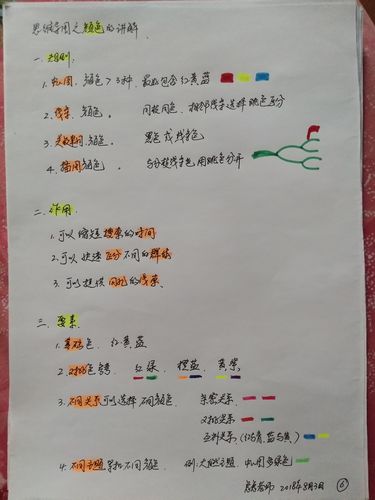 思维导图之颜色的讲解、
一、规则
1.中心图、颜色>3种、最好包含红黄蓝
2.线条、颜色。 同枝同色、相邻线条选择跳色区分
3.关键词、颜色。 黑色或线条色
4.插图颜色。 与分枝线条色用跳色分开
二、作用
1.可以缩短搜索的时间
2.可以快速区分不同的群组
3.可以提供同化的线索、
三、要素
1.基础色、红黄蓝
2.对抗色彩 红绿、橙蓝、黄紫
3.不同关系可以选择不同颜色 亲密关系
对抗关系
互补关系
4.不同主题导批不同颜色、例:大自然主题、中心图多绿色
老师 2018年8月3日 ⑥